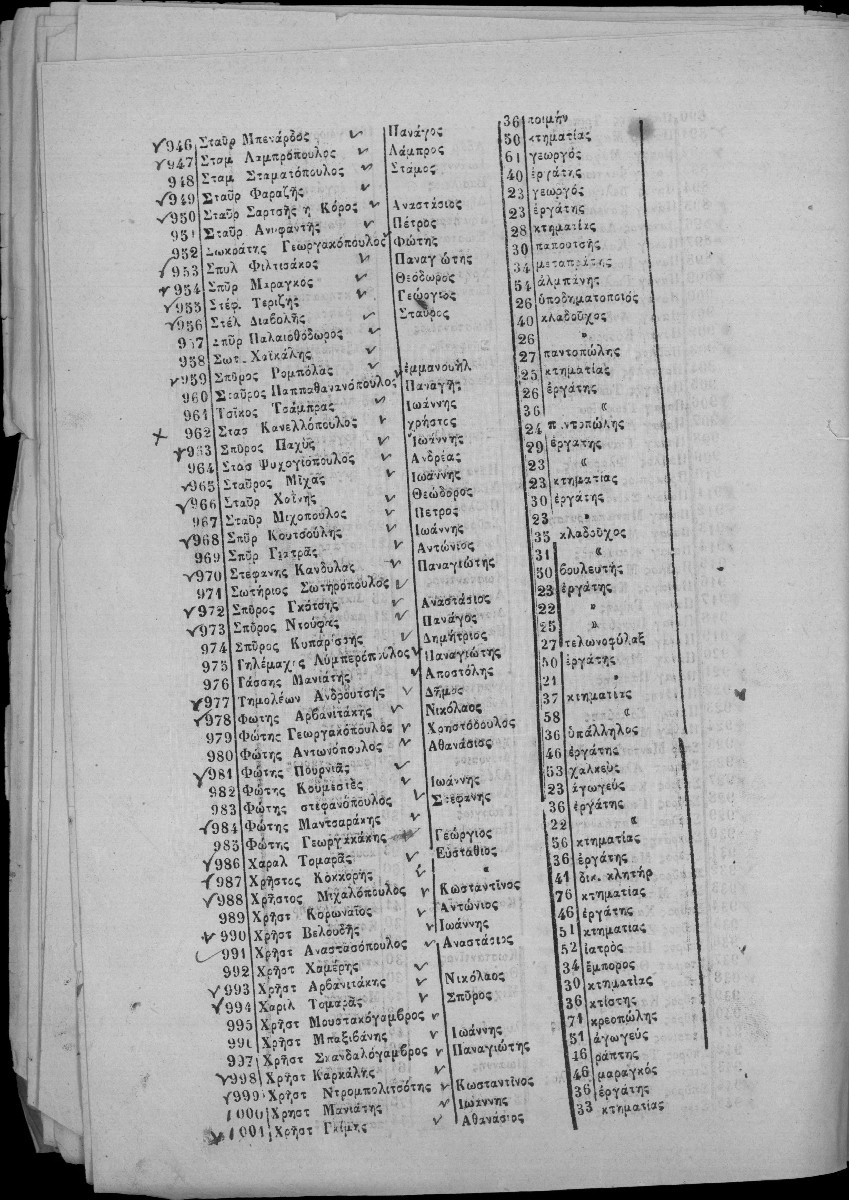 946 Σταῦρ Μπενάρδος Πανάγος 36 ποιμήν
947 Σταμ Λαμπρόπουλος Λάμπρος 50 κτηματίας
948 Σταμ Σταματόπουλος Στάμος 61 γεωργός
949 Σταῦρ Φαραζῆς 40 ἐργάτης
950 Σταῦρ Σαρτσῆς η Κόρος Αναστάσιος 23 γεωργός
951 Σταῦρ Ανυφαντής Πέτρος 23 ἐργάτης
952 Σωκράτης Γεωργακόπουλος Φώτης 28 κτηματίας
953 Σπυλ Φιλτισάκος Παναγιώτης 30 παπουτσής
954 Σπῦρ Μαραγκος Θεόδωρος 34 μεταπράτης
955 Στέφ. Τεριζῆς Γεώργιος 54 ἀλμπάνης
956 Στέλ Διαβολῆς Σταῦρος 26 ὑποδηματοποιός
957 Σπῦρ Παλαιοθόδωρος 40 κλαδοῦχος
958 Σωτ. Χαϊκάλης 26 »
959 Σπῦρος Ρομπόλας ἐμμανουήλ 27 παντοπώλης
960 Σταῦρος Παππαθανανόπουλος Παναγῆς 25 κτηματίας
961 Τσῖκος Τσάμπρας Ιωάννης 26 ἐργάτης
962 Στασ Κανελλόπουλος χρήστος 36 «
963 Σπῦρος Παχῦς Ἰωάννης 24 παντοπώλης
964 Στασ Ψυχογιόπουλος Ανδρέας 29 ἐργατης
965 Σταῦρος Μῖχας Ιωάννης 23 «
966 Σταῦρ Χαΐνης Θεώδορος 23 κτηματίας
967 Σταῦρ Μιχοπουλος Πετρος 30 ἐργάτης
968 Σπῦρ Κουτσούλης Ιωάννης 23 »
969 Σπῦρ Γιατρᾶς Αντώνιος 35 κλαδοῦχος
970 Στεφανης Κανδυλας Παναγιώτης 31 «
971 Σωτήριος Σωτηρόπουλος 50 βουλευτής
972 Σπῦρος Γκότσης Αναστάσιος 23 ἐργάτης
973 Σπῦρος Ντούφας Πανάγος 22 »
974 Σπῦρος Κυπαρίσσης Δημήτριος 25 »
975 Τηλέμαχος Λυμπερόπουλος Παναγιώτης 27 τελωνοφύλαξ
976 Τάσσης Μανιάτης Αποστόλης 50 ἐργάτης
977 Τημολέων Ανδρουτσής Δῆμος 21 »
978 Φωτης Αρβανιτάκης Νικόλαος 37 κτηματίας
979 Φώτης Γεωργακόπουλος Χρηστόδουλος 58 «
980 Φώτης Αντωνόπουλος Αθανάσιος 36 ὑπάλληλος
981 Φώτης Πουρνιᾶς 46 ἐργάτης
982 Φώτης Κουμεσιὲς Ιωάννης 53 χαλκεύς
983 Φώτης στεφανόπουλος Στεφανης 23 ἀγωγεύς
984 Φώτης Μαντσαράκης 36 ἐργάτης
985 Φώτης Γεωργακάκης Γεώργιος 22 «
986 Χαραλ Τομαρᾶς Εὐστάθιος 56 κτηματίας
987 Χρῆστος Κοκκορῆς « 36 ἐργάτης
988 Χρῆστος Μιχαλόπουλος Κωσταντῖνος 41 δικ. κλητήρ
989 Χρῆστ Κορωναῖος Αντώνιος 76 κτηματίας
990 Χρῆστ Βελουδῆς Ιωάννης 46 ἐργάτης
991 Χρῆστ Αναστασόπουλος Αναστάσιος 51 κτηματιας
992 Χρῆστ Χαμέρης 52 ἰατρὸς
993 Χρῆστ Αρβανιτάκης Νικόλαος 34 ἔμπορος
994 Χαριλ Τομαρᾶς Σπῦρος 30 κτηματίας
995 Χρῆστ Μουστακόγαμβρος 36 κτίστης
996 Χρῆστ Μπαξιβάνης Ιωάννης 71 κρεοπώλης
997 Χρῆστ Σκανδαλόγαμβρος Παναγιώτης 51 ἀγωγεύς
998 Χρῆστ Καρκάλῆς 46 ῥάπτης
999 Χρῆστ Ντρομπολιτσότης Κωσταντῖνος 46 μαραγκός
1000 Χρηστ Μανιάτης Ιωάννης 36 ἐργάτης
1001 Χρῆστ Γκίμης Αθανάσιος 33 κτηματίας